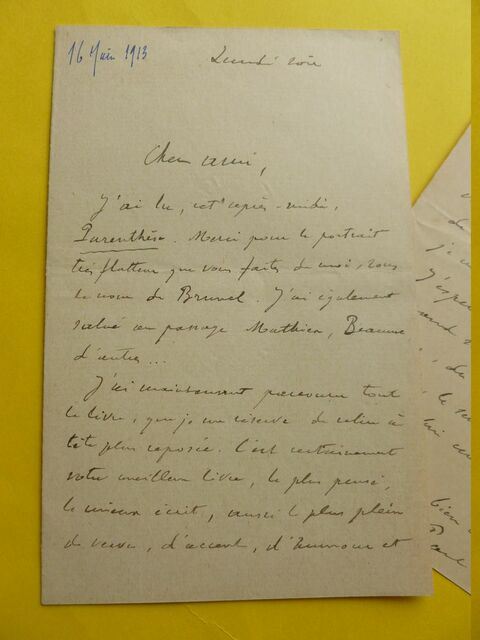 16 Juin 1913
Lundi soir
Cher ami,
J'ai lu, cet après-midi,
Parenthèse. Merci pour le portrait
très flatteur que vous faites de moi, sous
le nom de Brunel. J'ai également
salué au passage Mathieu, Beaume
d'autres...
J'ai maintenant parcouru tout
le livre, que je me réserve de relire à
tête plus reposée. C'est certainement
votre meilleur livre, le plus pensé,
le mieux écrit, aussi le plus plein
de verve, d'accent, d'humour et